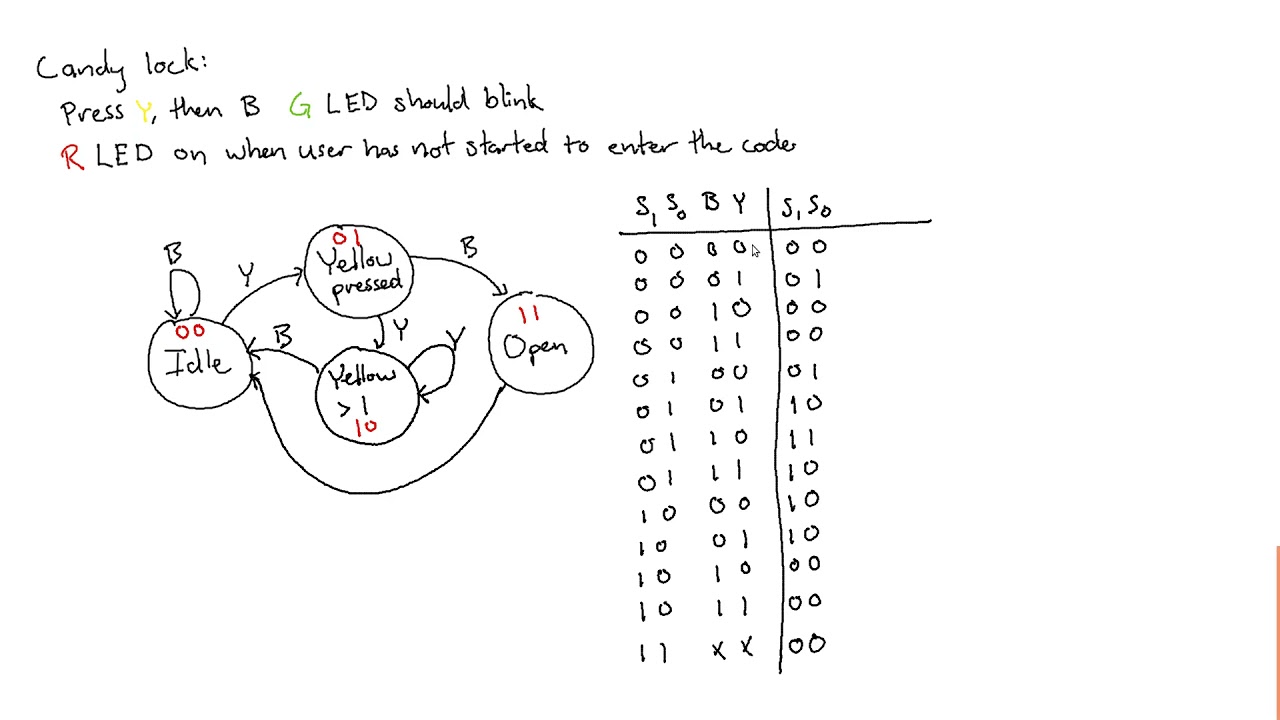 Candy lock:
Press Y, then B G LED should blink
R LED on when user has not started to enter the code
B
Y
01
Yellow
pressed
B
00
Idle
B
Y
Y
Yellow
> 1
10
11
Open
S1 S0 B Y S1 S0
0 0 0 0 0 0
0 0 0 1 0 1
0 0 1 0 0 0
0 0 1 1 0 0
0 1 0 0 0 1
0 1 0 1 1 0
0 1 1 0 1 1
0 1 1 1 1 0
1 0 0 0 1 0
1 0 0 1 1 0
1 0 1 0 0 0
1 0 1 1 0 0
1 1 X X 0 0